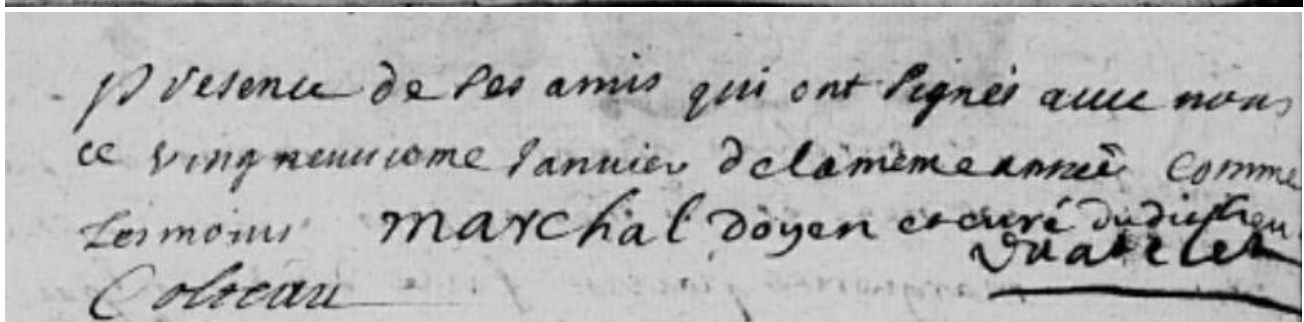 presence de ses amis qui ont signés avec nous
ce vingneuvieme Januier de la mème année comme
tesmoins marchal doyen et curé dudit lieu